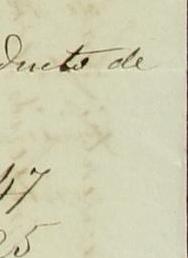 ducto de
47
25